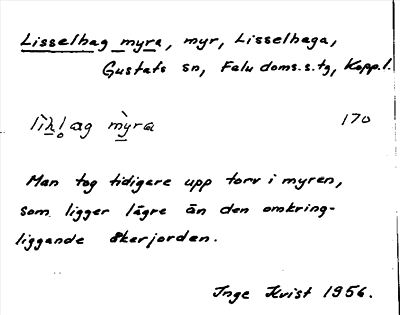 Lisselhag myra, myr, Lisselhaga,
Gustafs sn, Falu doms.s.tg, Kopp.l.
170
Man tog tidigare upp torv i myren,
som ligger lägre än den omkring-
liggande åkerjorden.
Inge Kvist 1956.